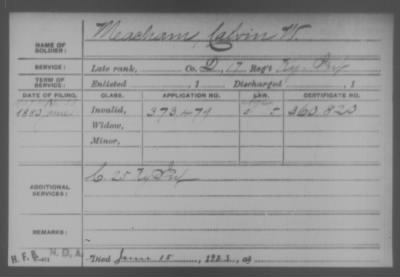 NAME OF SOLDIER: Meacham, Calvin W.
SERVICE: Late rank, Co. D, 17 Reg't Ky. Inf
TERM OF SERVICE: Enlisted , 1 Discharged , 1
DATE OF FILING. CLASS. APPLICATION NO. LAW. CERTIFICATE NO.
1880 June Invalid, 373.479 360.823
Widow,
Minor,
ADDITIONAL SERVICES: C. 25 Ky Inf
REMARKS:
H. F. B. N. D. A. Died June 15, 1923, at